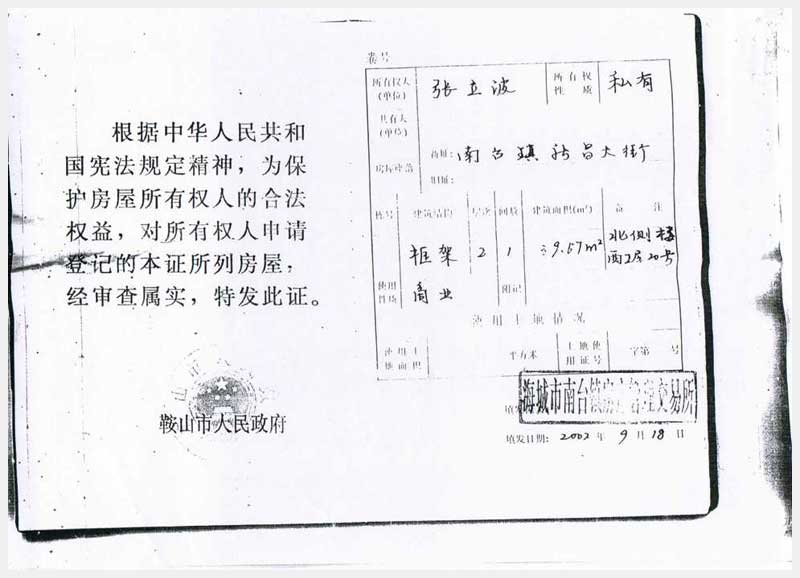 根据中华人民共和
国宪法规定精神，为保
护房屋所有权人的合法
权益，对所有权人申请
登记的本证所列房屋，
经审查属实，特发此证。
鞍山市人民政府
卷号
所有权人(单位) 张立波 所有权性质 私有
共有人(单位)
房屋坐落 南台镇 大街
栋号 建筑结构 层次 间数 建筑面积(m²) 备注
框架 2 1 9.57m² 北侧楼
20号
使用性质 商业 附记
使用土地情况
使用土地面积 平方米 土地使用证号 字第 号
海城市南台镇房 管理交易所
填发日期: 2002年 9月18日